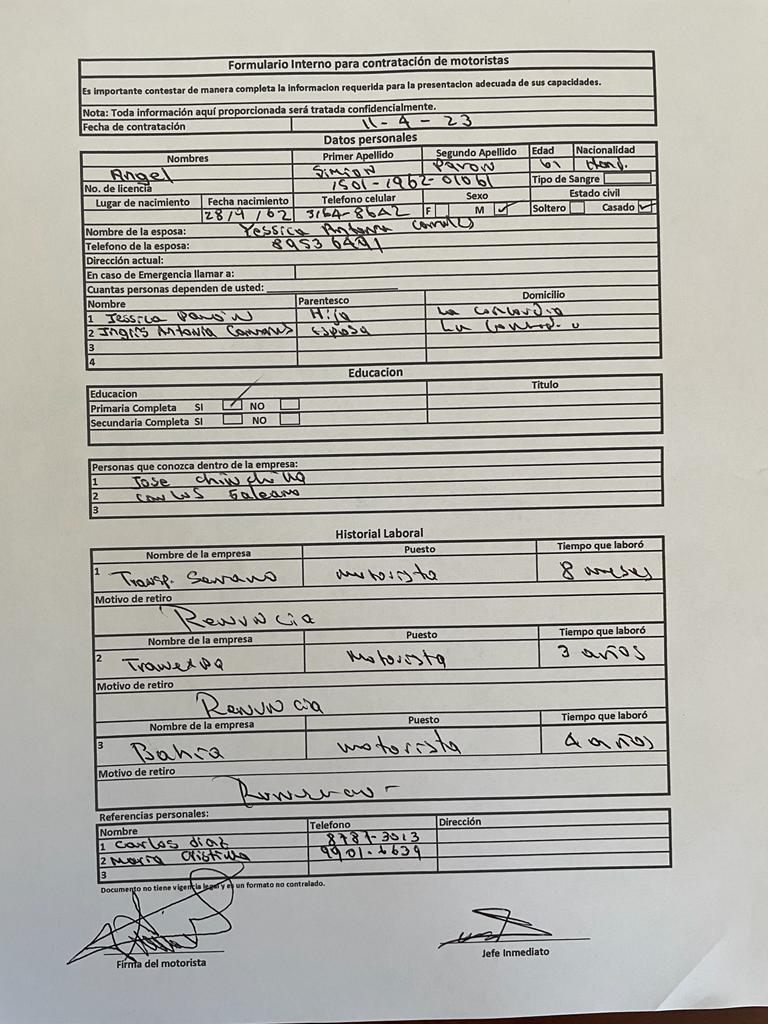 Formulario Interno para contratación de motoristas
Es importante contestar de manera completa la informacion requerida para la presentacion adecuada de sus capacidades.
Nota: Toda información aquí proporcionada será tratada confidencialmente.
Fecha de contratación 11-4-23
Datos personales
Nombres Primer Apellido Segundo Apellido Edad Nacionalidad
Angel Simion Pavon 61 Hond.
No. de licencia 1501-1962-01061 Tipo de Sangre
Lugar de nacimiento Fecha nacimiento Telefono celular Sexo Estado civil
28/9/62 3164-8642 F M ✓ Soltero Casado ✓
Nombre de la esposa: Yessica Antonia
Telefono de la esposa: 8953 6491
Dirección actual:
En caso de Emergencia llamar a:
Cuantas personas dependen de usted:
Nombre Parentesco Domicilio
1 Jessica Pavon Hija La Concordia
2 Antonia Esposa La
3
4
Educacion
Educacion Titulo
Primaria Completa SI ✓ NO
Secundaria Completa SI NO
Personas que conozca dentro de la empresa:
1 Jose chinchilla
2 Carlos Galeano
3
Historial Laboral
Nombre de la empresa Puesto Tiempo que laboró
1 Transp. Serrano motorista 8 meses
Motivo de retiro
Renuncia
Nombre de la empresa Puesto Tiempo que laboró
2 Motorista 3 años
Motivo de retiro
Renuncia
Nombre de la empresa Puesto Tiempo que laboró
3 Bahia motorista 4 años
Motivo de retiro
Referencias personales:
Nombre Telefono Dirección
1 Carlos diaz 8787-3013
2 Maria Cristina 9901-6639
3
Documento no tiene vigencia legal y es un formato no contralado.
Firma del motorista Jefe Inmediato